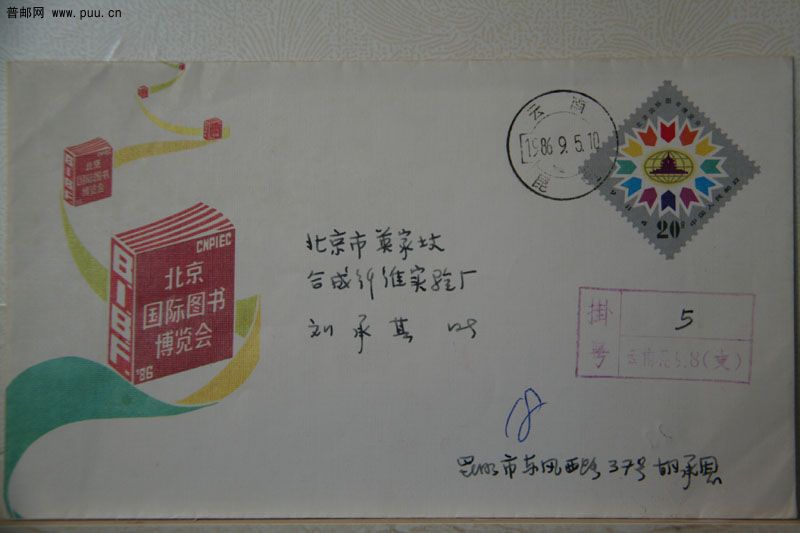 普邮网 www.puu.cn
云南
1986.9.5.10
昆
20分
中国人民邮政
BIBF
北京
国际图书
博览会
CNPIEC
BIBF
北京
国际图书
博览会
'86
北京市莫家坟
合成纤维实验厂
刘承其
挂号
5
8(支)
18
昆明市东风西路37号 胡承恩